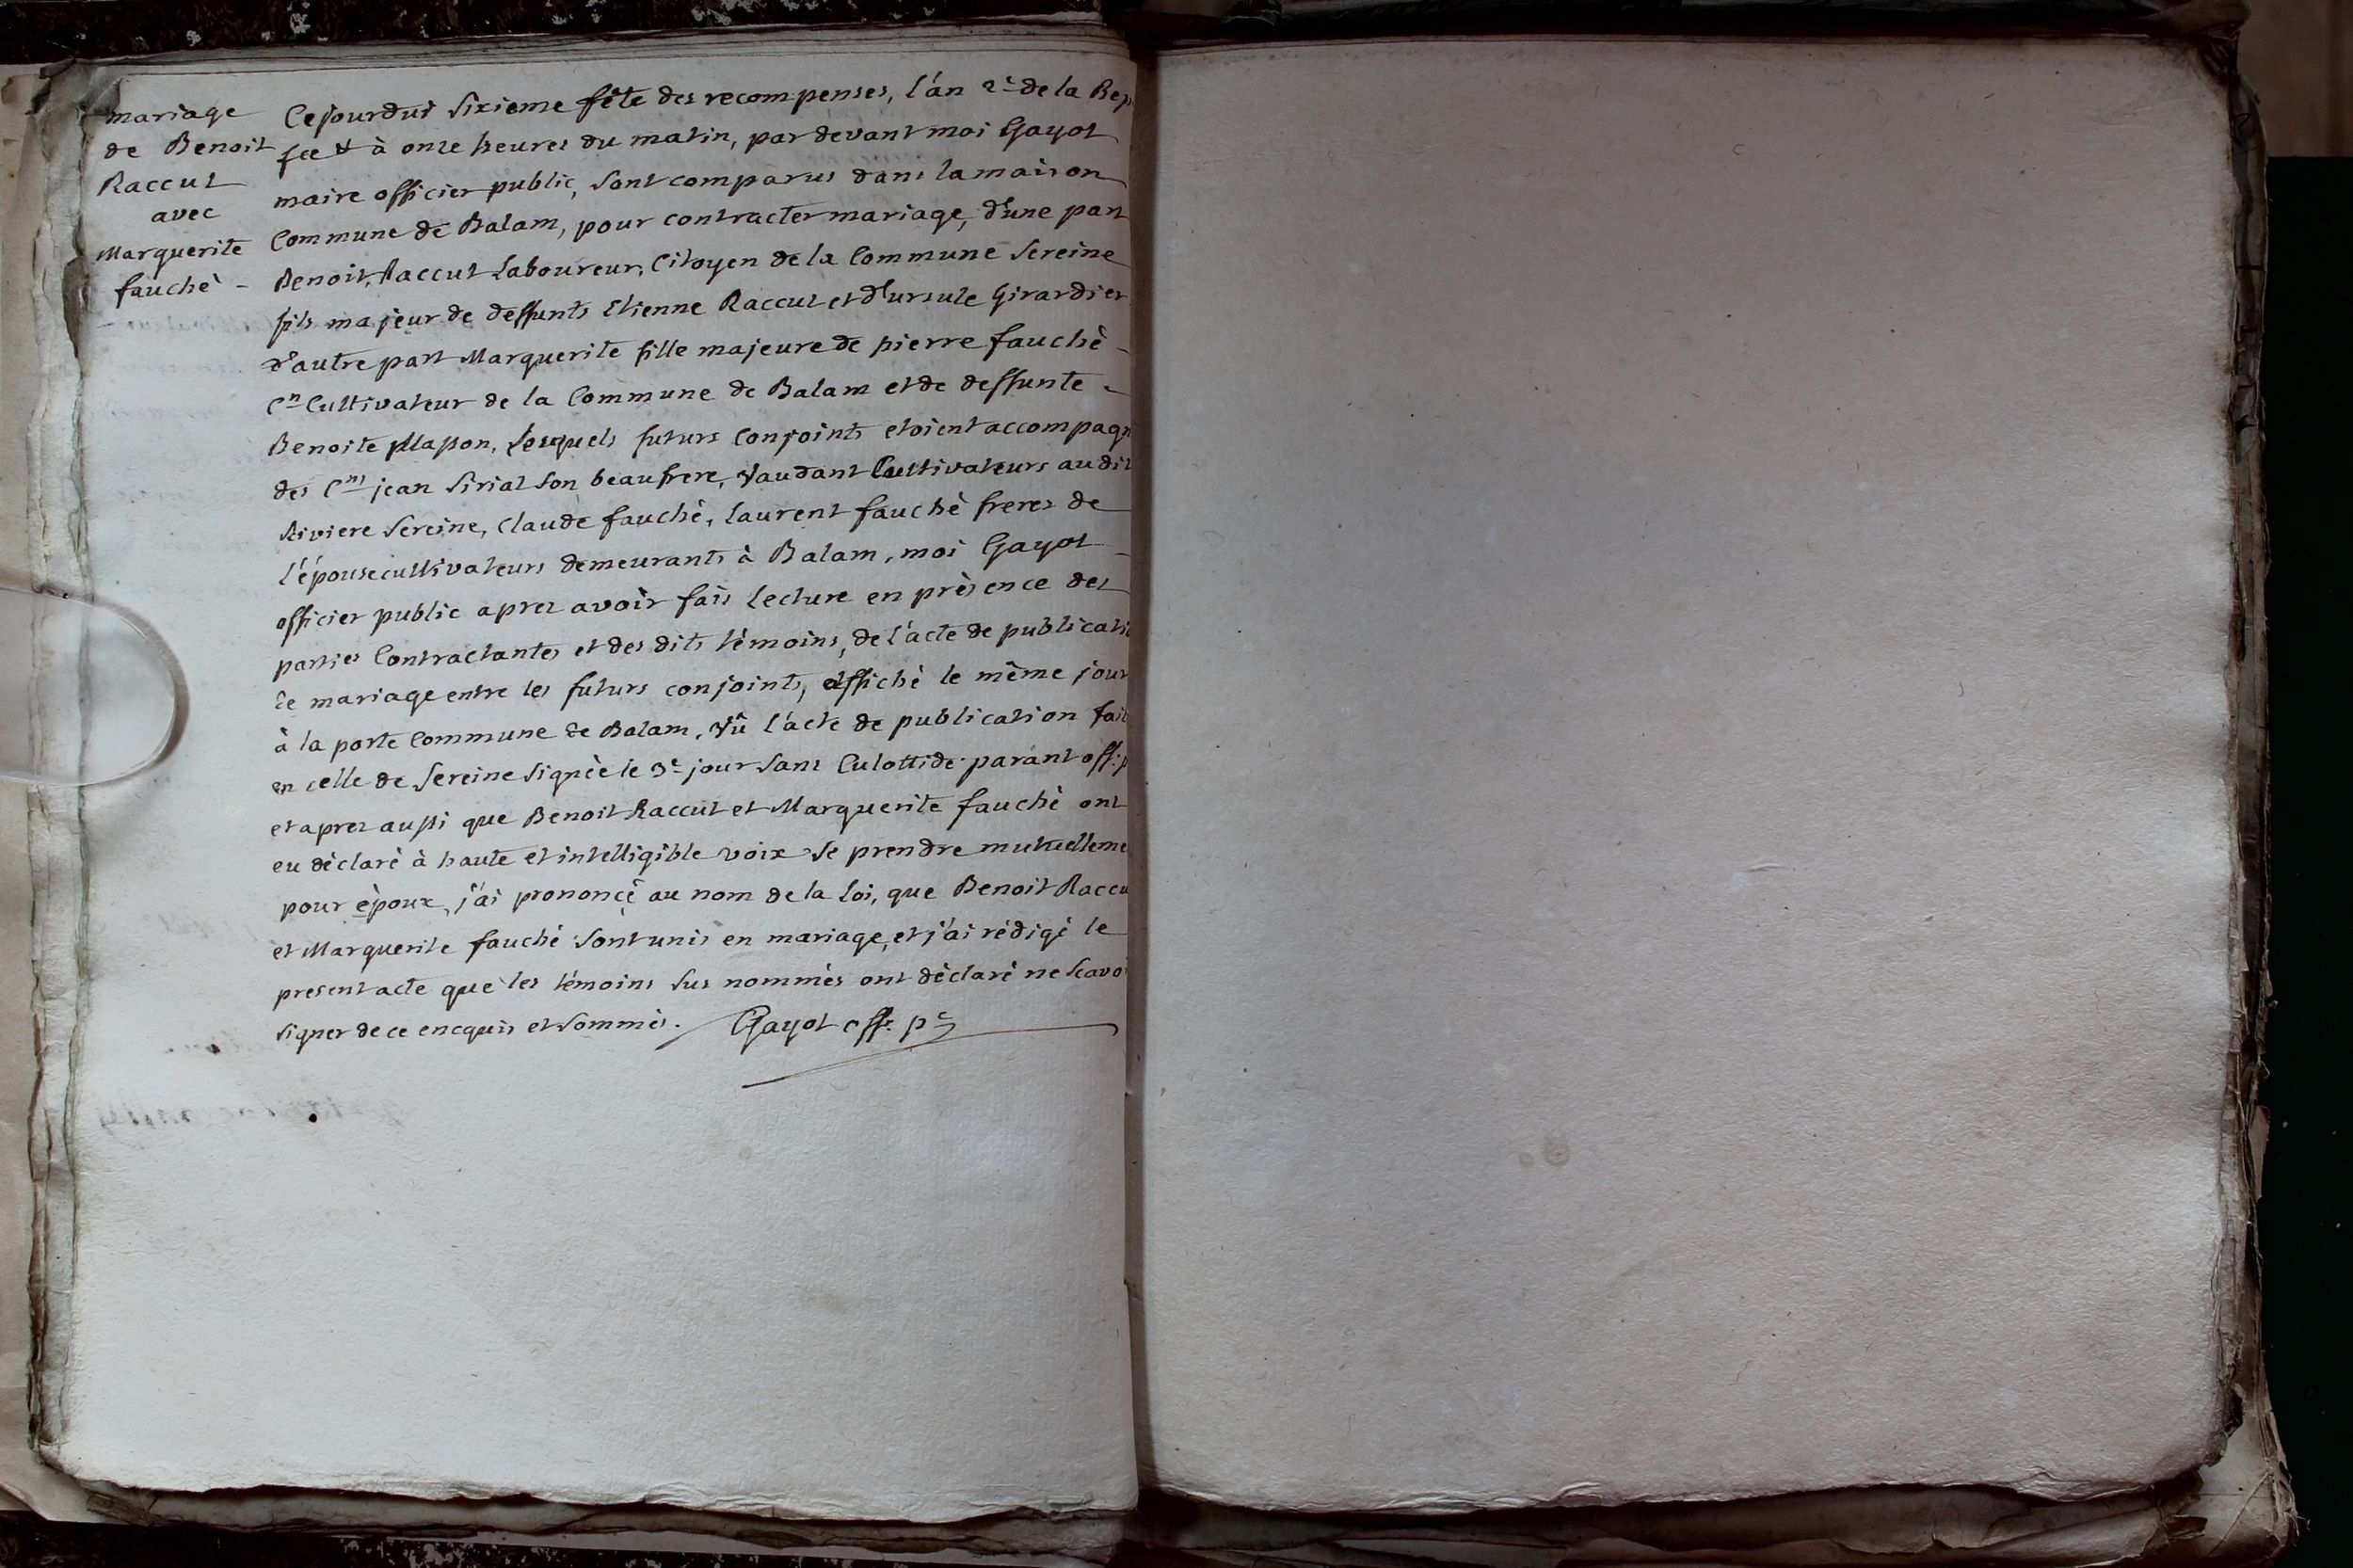 mariage
de Benoit
Raccut
avec
Marguerite
fauché -
Cejourdui Sixieme fête des recompenses, l'an 2e de la Rep
fce & à onze heures du matin, par devant moi Gayot
maire officier public, Sont comparus dans la maison
Commune de Balam, pour contracter mariage, d'une part
Benoit Raccut Laboureur, Citoyen de la Commune Sereine
fils majeur de deffunts Etienne Raccut et d'ursule Girardier
d'autre part Marguerite fille majeure de pierre fauché -
Cn Cultivateur de la Commune de Balam et de deffunte -
Benoite, Lesquels futurs Conjoints etoient accompagn
des Cns jean Sirial Son beaufrere, Vaudant Cultivateurs au dit
Riviere Sereine, Claude fauché, laurent fauché freres de
l'épouse cultivateurs demeurants à Balam, moi Gayot -
officier public aprez avoir fais lecture en présence des
parties Contractantes et des dits témoins, de l'acte de publicati
de mariage entre les futurs conjoints, affiché le même jour
à la porte Commune de Balam, Vû l'acte de publication fait
en celle de Sereine Signée le 3e jour Sans Culottide parant off. p
et aprez aussi que Benoit Raccut et Marguerite fauché ont
eu déclaré à haute et intelligible voix Se prendre mutuelleme
pour époux, j'ai prononçé au nom de la Loi, que Benoit Raccu
et Marguerite fauché Sont unis en mariage, et j'ai rédigé le
present acte que les témoins Sus nommés ont déclaré ne Scavo
signer de ce encquis et Sommés. Gayot off. pc